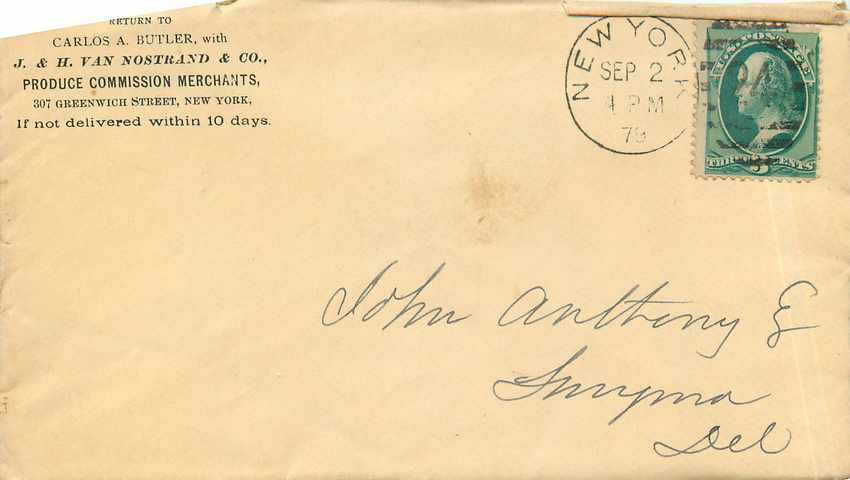 RETURN TO
CARLOS A. BUTLER, with
J. & H. VAN NOSTRAND & CO.,
PRODUCE COMMISSION MERCHANTS,
307 GREENWICH STREET, NEW YORK,
If not delivered within 10 days.
NEW YORK
SEP 2
4 PM
79
U.S. POSTAGE
THREE CENTS
3
John Anthony E
Smyrna
Del